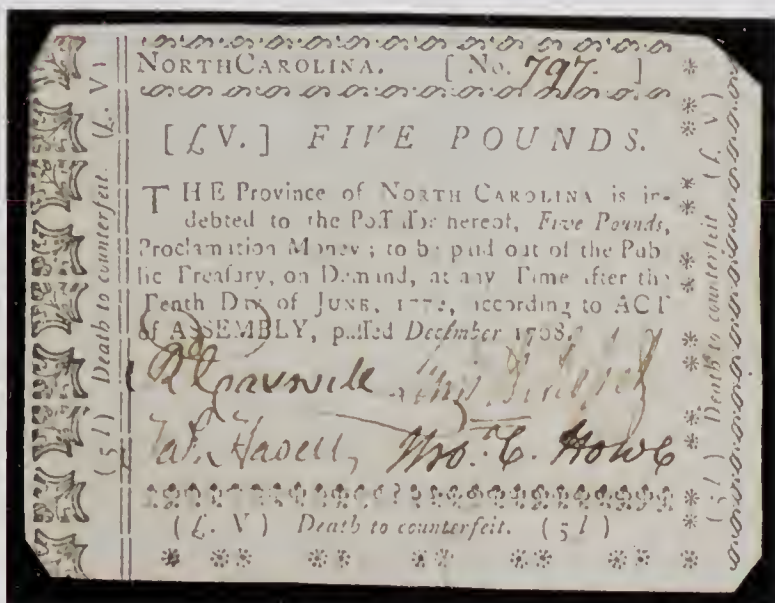 NORTHCAROLINA. [ No. 797. ]
[ £ V. ] FIVE POUNDS.
THE Province of NORTH CAROLINA is in-
debted to the Possessor hereof, Five Pounds,
Proclamation Money; to be paid out of the Pub
lic Treasury, on Demand, at any Time after the
Tenth Day of JUNE, 1772, according to ACT
of ASSEMBLY, passed December 1768.
Jas. Hasell, Tho. C. Howe
(£. V) Death to counterfeit. (5l)
(5l) Death to counterfeit. (£. V)
(5l) Death to counterfeit (£. V)